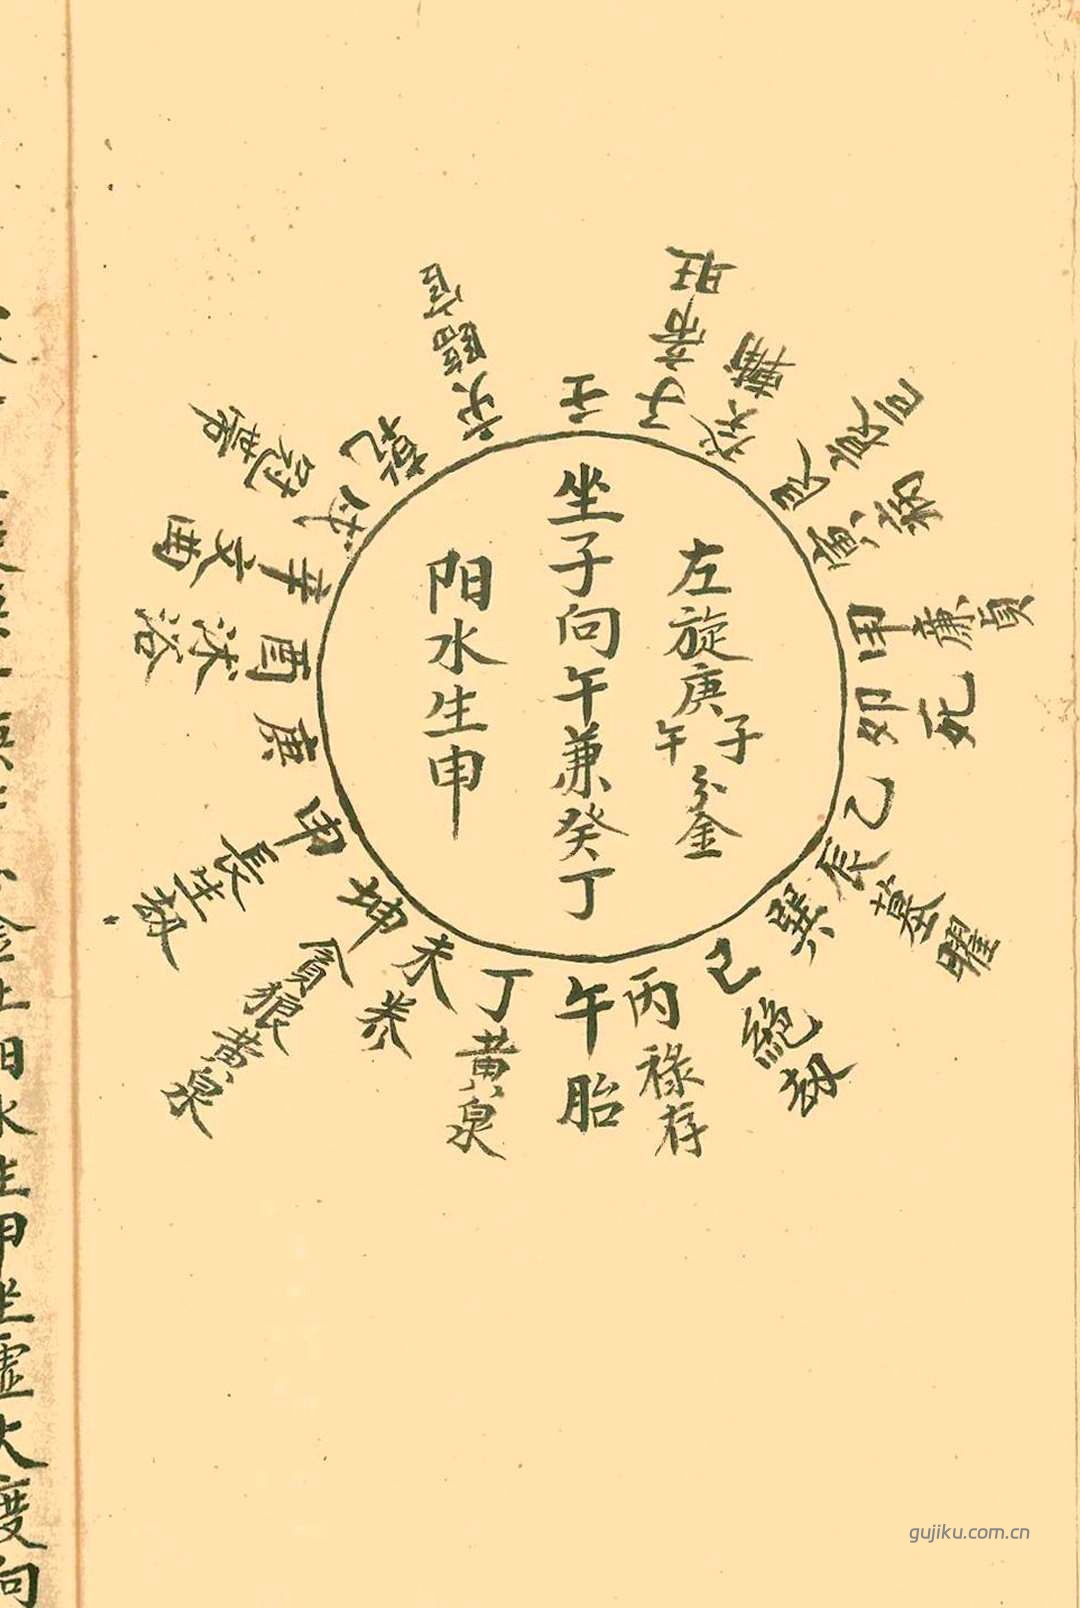 左旋庚子
午
分金
坐子向午兼癸丁
阳水生申
壬
子帝旺
癸輔
艮
寅病
甲廉貞
卯死
乙
辰墓
巽
巳絕
丙祿存
午胎
丁黄泉
未养
坤貪狼黄泉
申長生
庚
酉沐浴
辛文曲
戌冠帶
乾
亥臨官
金
阳水生甲坐虚
度向
gujiku.com.cn